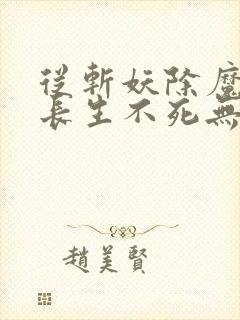 從斬妖除魔
長生不死無
趙美賢